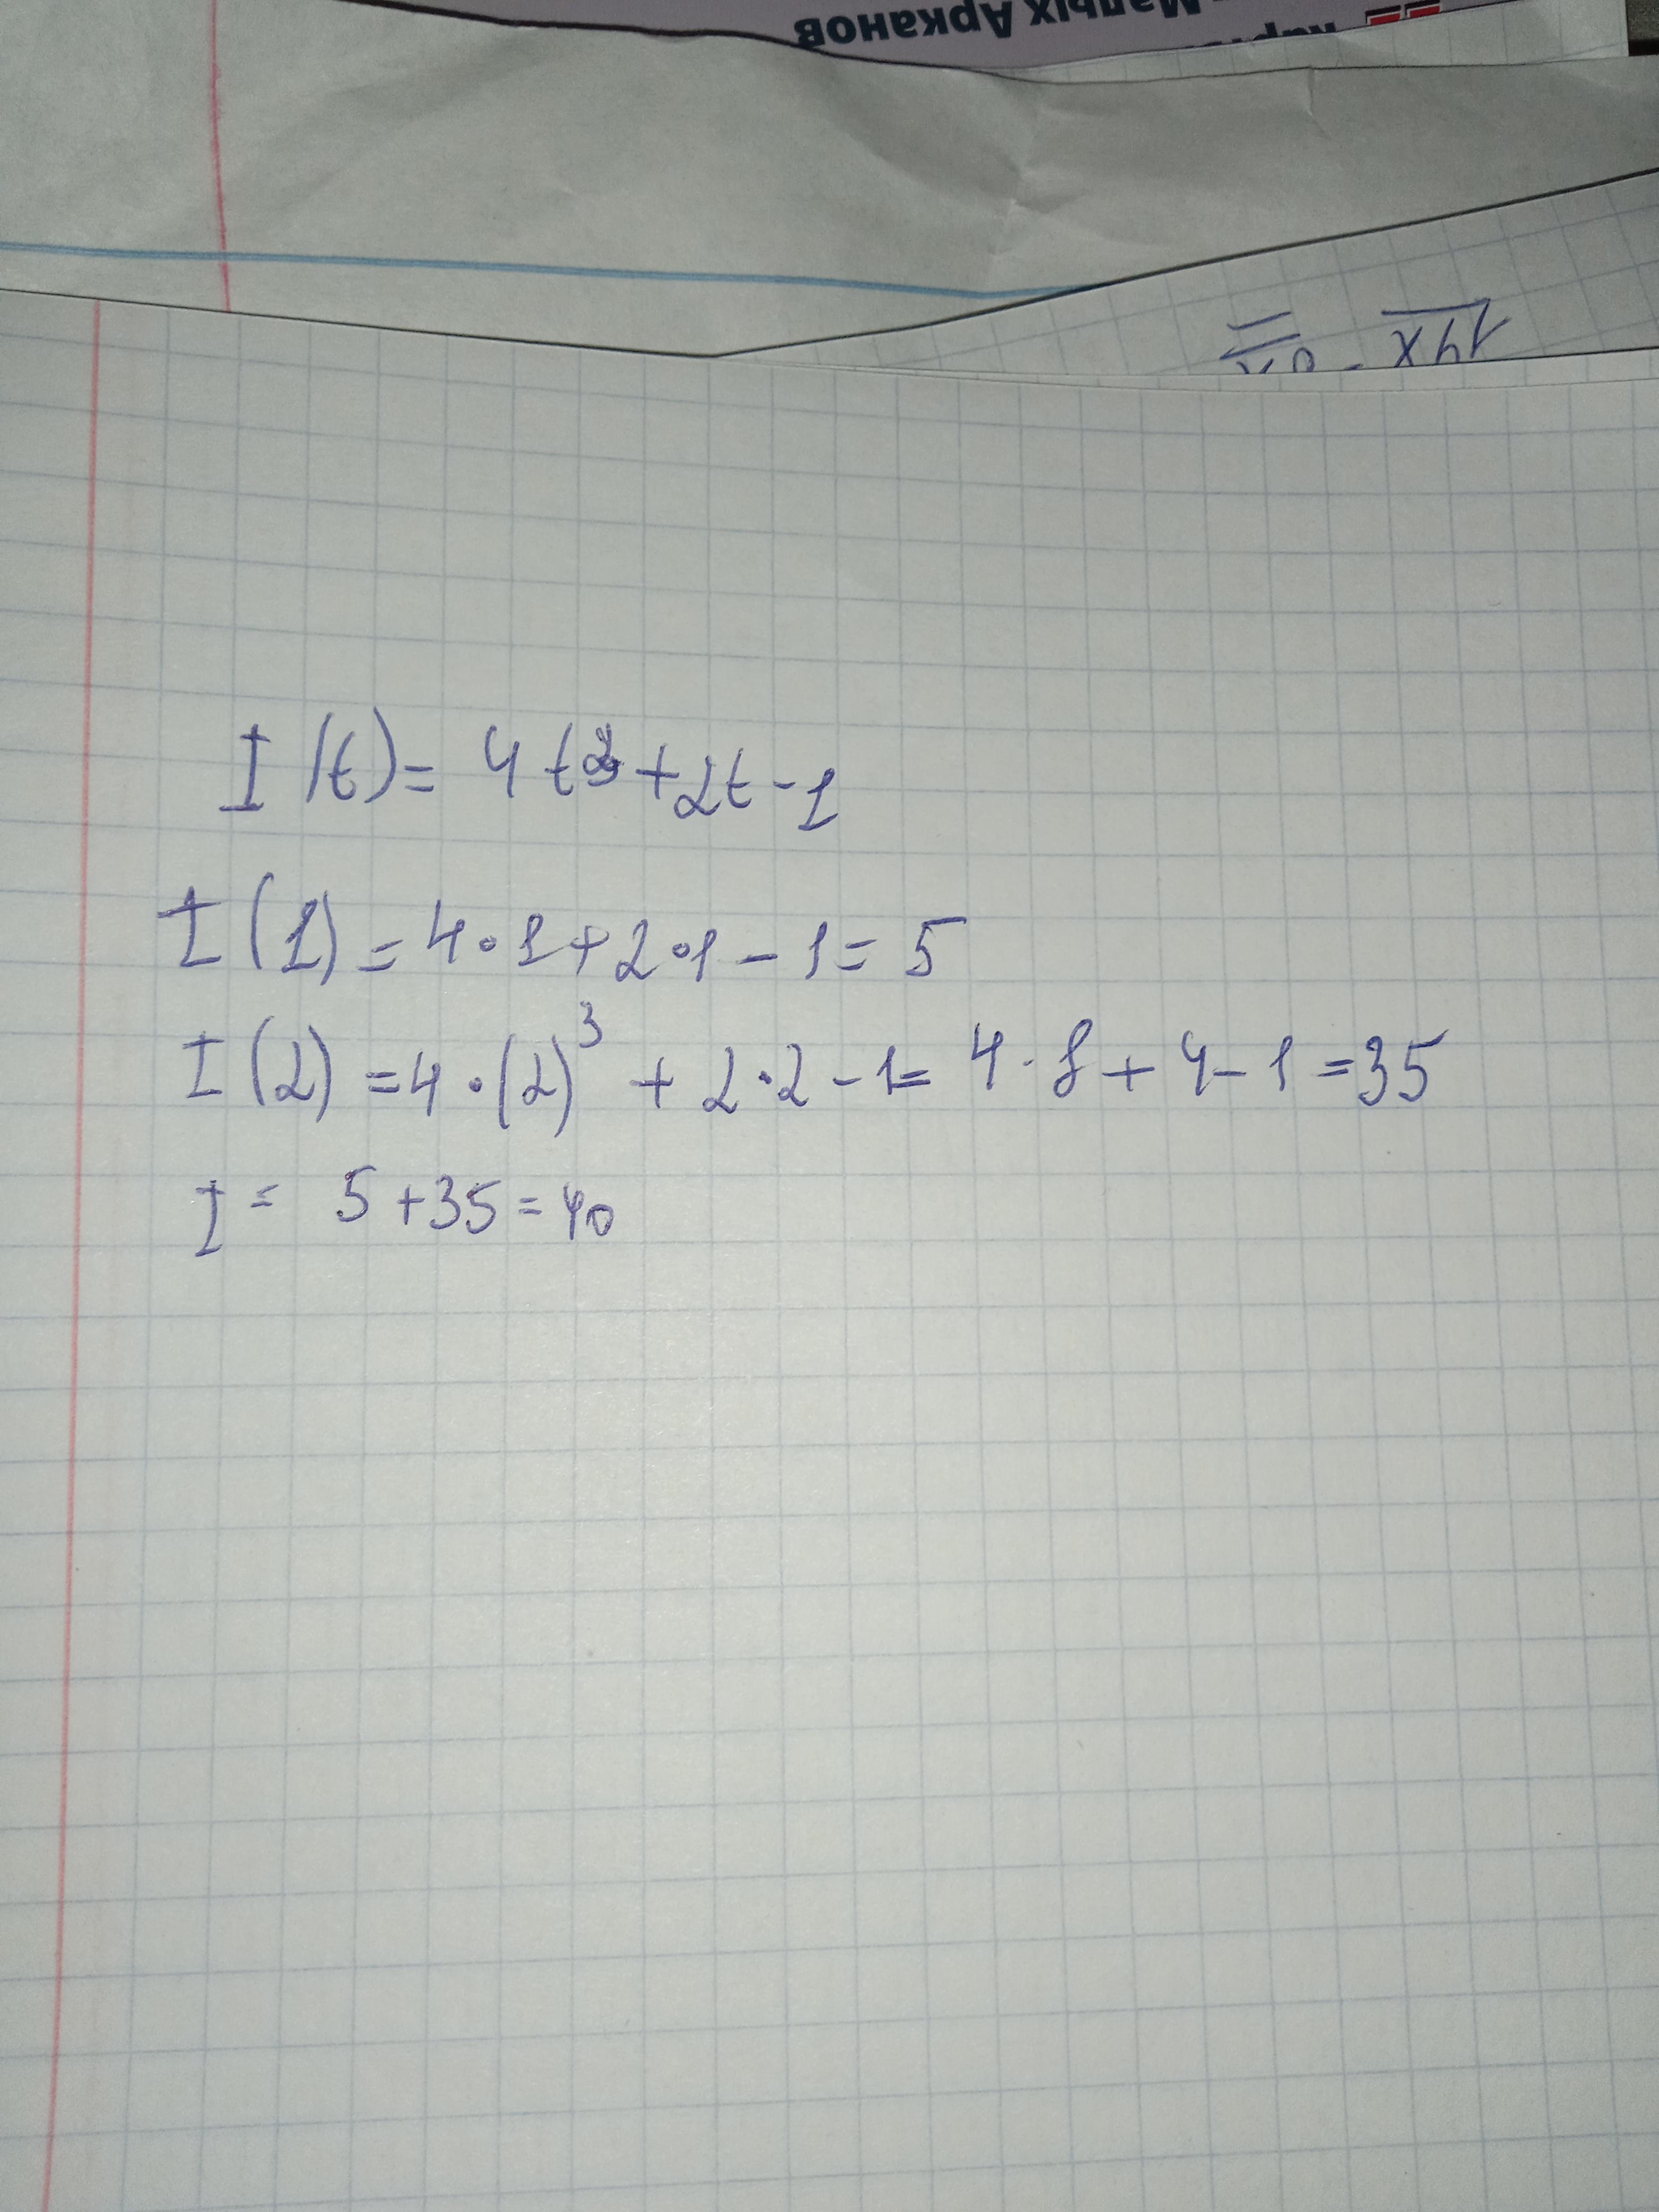 Малых Арканов
14x
I(t) = 4t³+2t-1
I(1) = 4·1+2·1-1=5
I(2) =4·(2)³ + 2·2-1= 4·8+4-1=35
I = 5+35=40